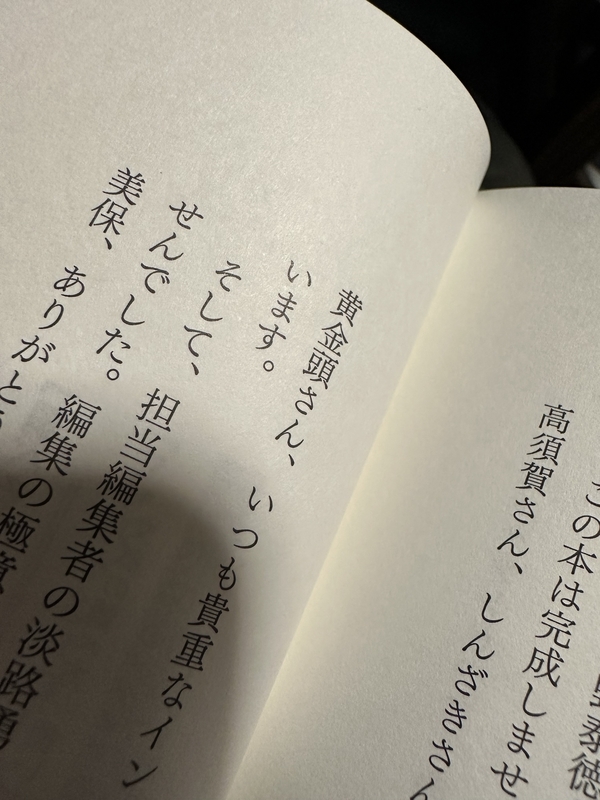 泰徳
この本は完成しませ
高須賀さん、しんざきさん
黄金頭さん、いつも貴重なイン
います。
そして、担当編集者の淡路勇
せんでした。編集の極意
美保、ありがとう